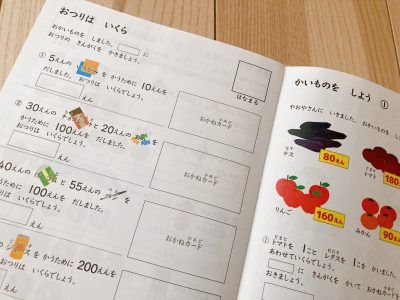 おつりは いくら
おかいものを しました。 に
おつりの きんがくを かきましょう。
はなまる
① 5えんの を かうために 10えんを
だしました。 おつりは いくらでしょう。
えん
おかねカード
② 30えんの と 20えんの を
かうために 100えんを だしました。
おつりは いくらでしょう。
えん
おかねカード
40えんの と 55えんの を
かうために 100えんを だしました。
おつりは いくらでしょう。
えん
おかねカード
を かうために 200えんを
いくらでしょう。
かいものを しよう ①
やおやさんに いきました。 おかいものを
ナス
80えん
トマト
180
りんご
160えん
みかん
90えん
① トマトを 1こと レタスを 1こ か
あわせていくらでしょう。
に きんがくを かいて おかねカードを
おきましょう。